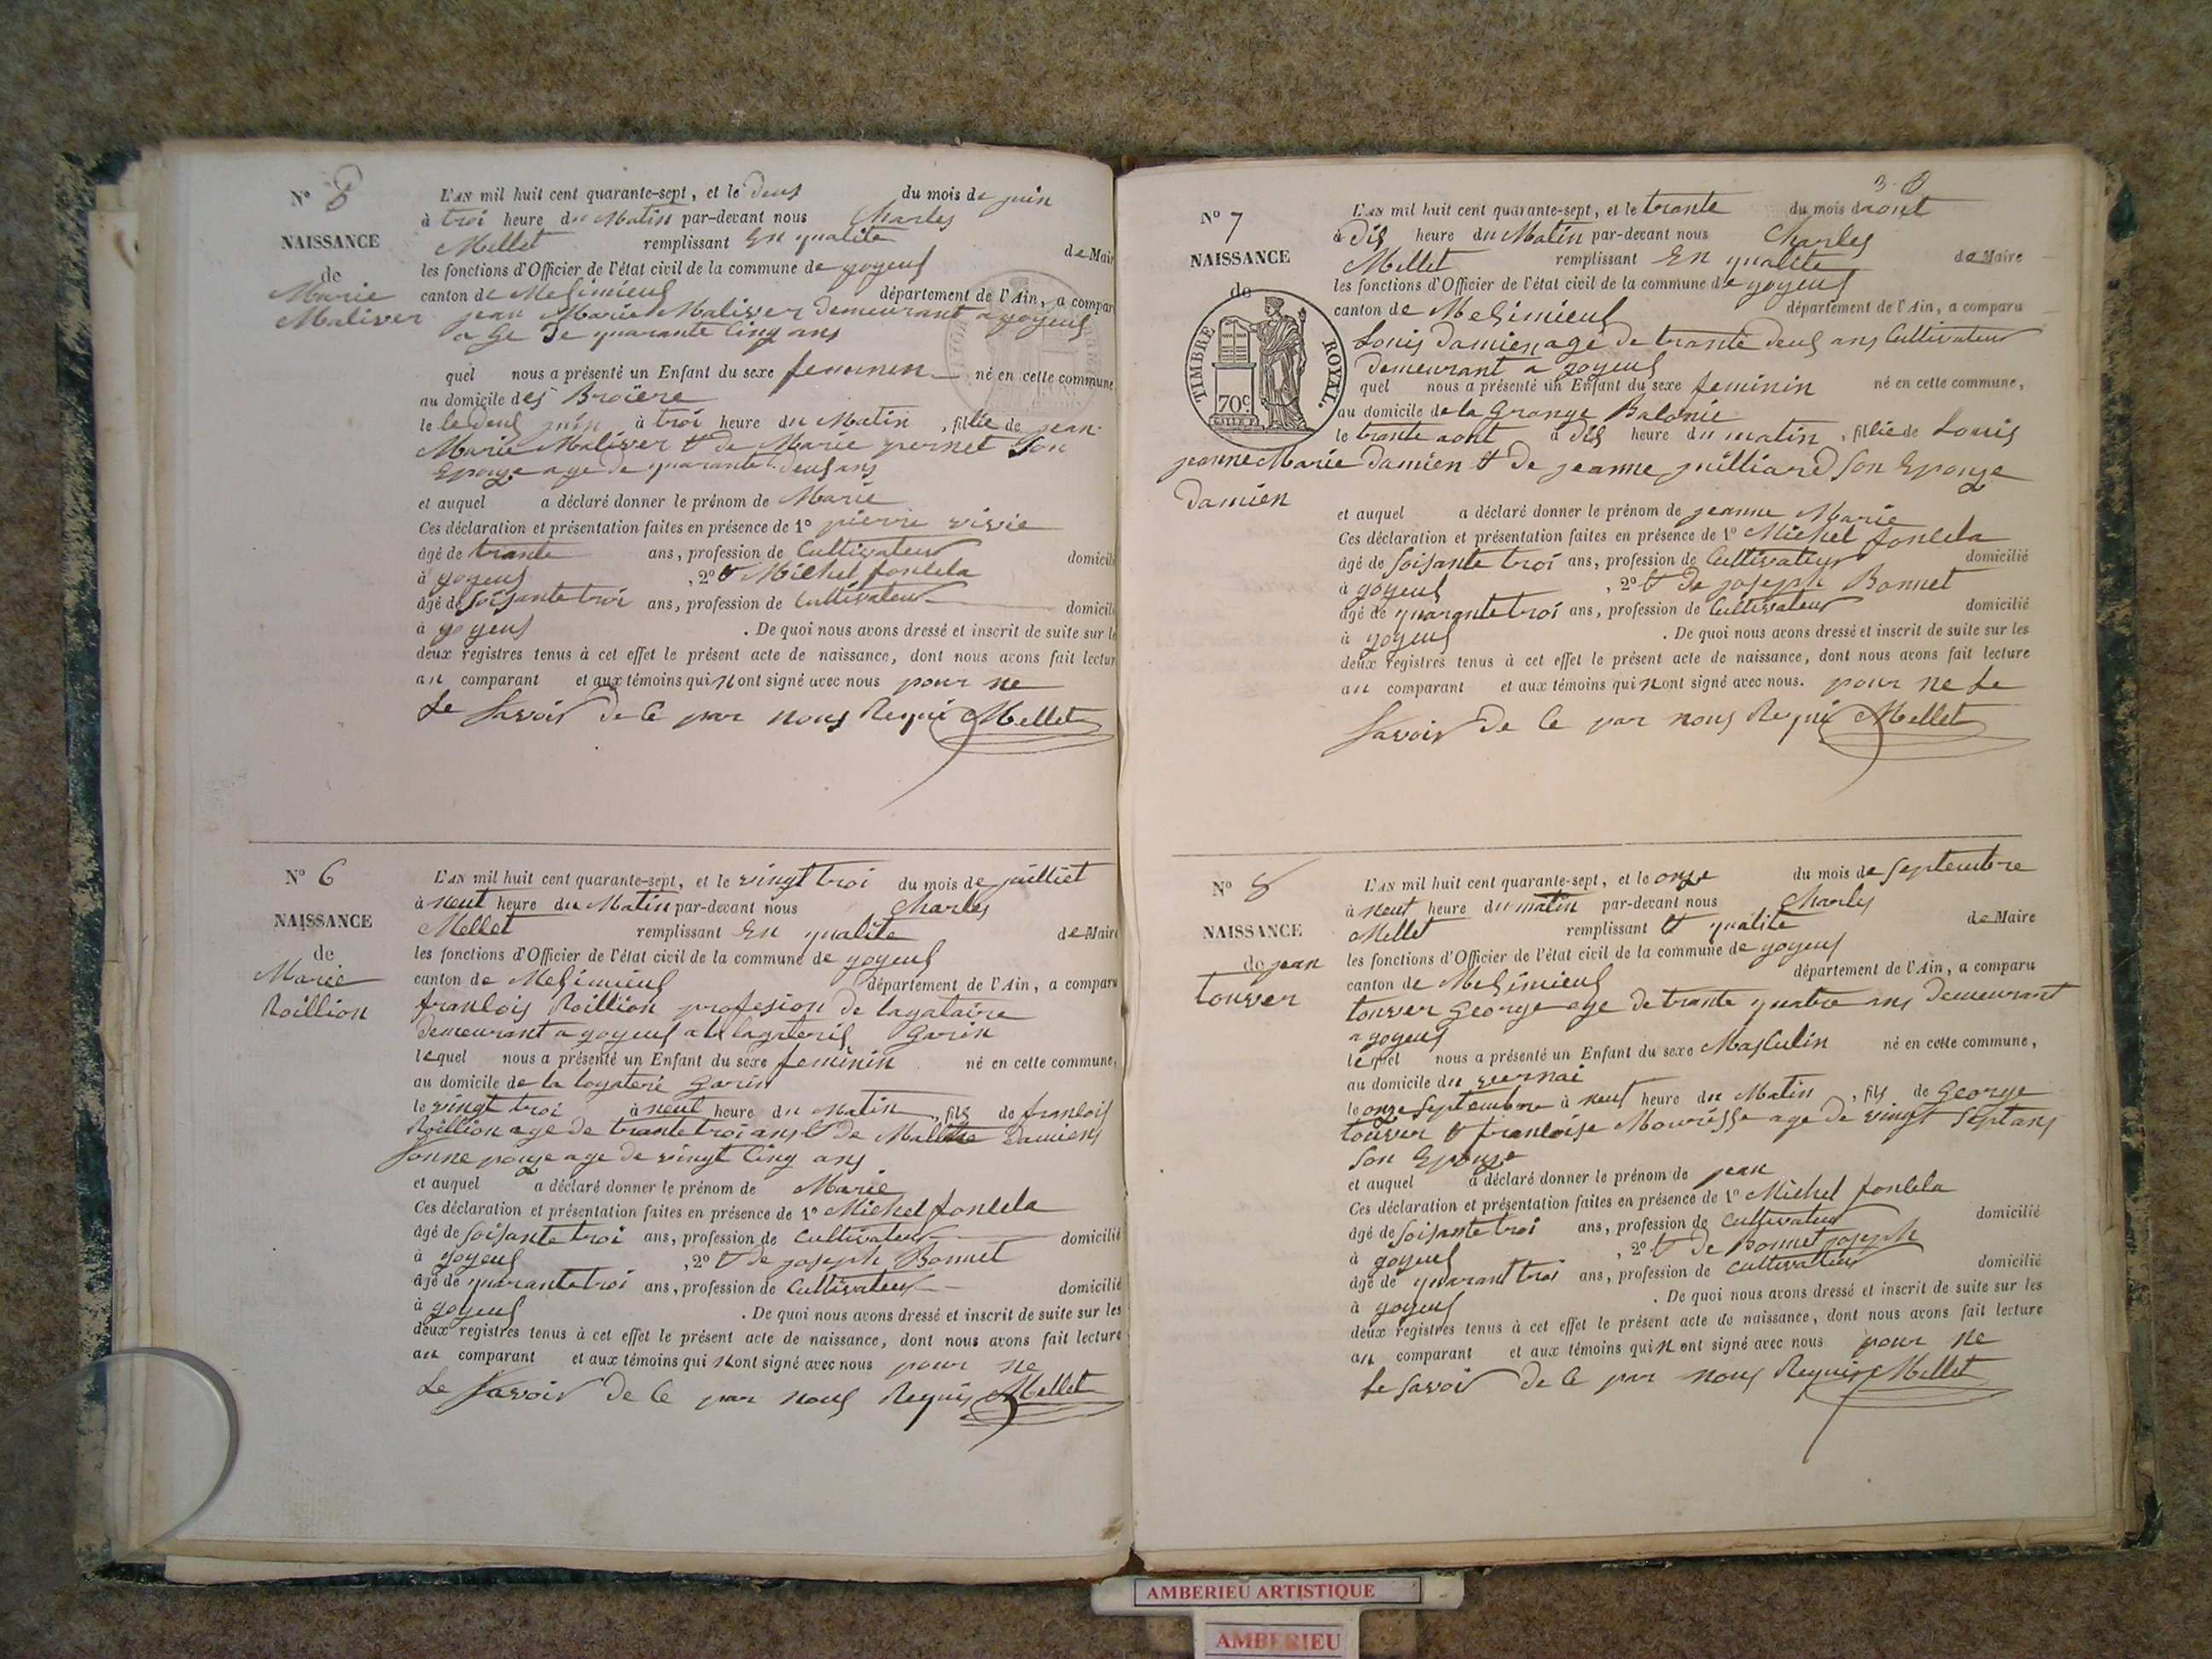 N° 5
NAISSANCE
de
Marie
Maliver
L'AN mil huit cent quarante-sept, et le deus du mois de juin
à troi heure du Matin par-devant nous Charles
Mellet remplissant En qualite de Mair
les fonctions d'Officier de l'état civil de la commune de joyeus
canton de Mesimieus département de l'Ain, a compar
jean Marie Maliver demeurant a joyeus
age de quarante cinq ans
quel nous a présenté un Enfant du sexe femenen né en cette commune,
au domicile des Broïere
le le deus juin à troi heure du Matin, fillie de jean
Marie Maliver & de Marie pernet Son
Epouze age de quarante deus ans
et auquel a déclaré donner le prénom de Marie
Ces déclaration et présentation faites en présence de 1° pierre vivie
âgé de trante ans, profession de Cultivateur domicili
à joyeus , 2° & Michel fontela
âgé de soisante troi ans, profession de Cultivateur domicili
à joyeus . De quoi nous avons dressé et inscrit de suite sur le
deux registres tenus à cet effet le présent acte de naissance, dont nous avons fait lectur
au comparant et aux témoins qui nont signé avec nous pour ne
Le Savoir de ce par nous Requi Mellet
N° 6
NAISSANCE
de
Marie
Roillion
L'AN mil huit cent quarante-sept, et le vingt troi du mois de juilliet
à neuf heure du Matin par-devant nous Charles
Mellet remplissant En qualite de Maire
les fonctions d'Officier de l'état civil de la commune de joyeus
canton de Mesimieus département de l'Ain, a comparu
francois Roillion profesion de lagataire
demeurant a joyeus a la Garin
lequel nous a présenté un Enfant du sexe feminin né en cette commune,
au domicile de la logateri Garin
le vingt troi à neuf heure du Matin, fils de francois
Roillion age de trante troi ans & de Damiens
Sonne pouze age de vingt cinq ans
et auquel a déclaré donner le prénom de Marie
Ces déclaration et présentation faites en présence de 1° Michel fontela
âgé de soisante troi ans, profession de Cultivateur domicilié
à joyeus , 2° & de joseph Bonnet
âgé de quarante troi ans, profession de Cultivateur domicilié
à joyeus . De quoi nous avons dressé et inscrit de suite sur les
deux registres tenus à cet effet le présent acte de naissance, dont nous avons fait lecture
au comparant et aux témoins qui nont signé avec nous pour ne
Le Savoir de ce par nous Requis Mellet
3.
N° 7
NAISSANCE
de
TIMBRE ROYAL.
70c
jeanne Marie
Damien
L'AN mil huit cent quarante-sept, et le trante du mois daout
à Dis heure du Matin par-devant nous Charles
Mellet remplissant En qualite de Maire
les fonctions d'Officier de l'état civil de la commune de joyeus
canton de Mesimieus département de l'Ain, a comparu
Louis Damien age de trante deus ans Cultivateur
demeurant a joyeus
quel nous a présenté un Enfant du sexe feminin né en cette commune,
au domicile de la Grange Balonie
le trante aout à dis heure du matin, fillie de Louis
Damien & de jeanne juilliard Son Epouze
et auquel a déclaré donner le prénom de jeanne Marie
Ces déclaration et présentation faites en présence de 1° Michel fontela
âgé de soisante troi ans, profession de Cultivateur domicilié
à joyeus , 2° & de joseph Bonnet
âgé de quarante troi ans, profession de Cultivateur domicilié
à joyeus . De quoi nous avons dressé et inscrit de suite sur les
deux registres tenus à cet effet le présent acte de naissance, dont nous avons fait lecture
au comparant et aux témoins qui nont signé avec nous. pour ne Le
Savoir de ce par nous Requi Mellet
N° 8
NAISSANCE
de jean
touver
L'AN mil huit cent quarante-sept, et le onze du mois de Septembre
à neuf heure du matin par-devant nous Charles
Mellet remplissant & qualite de Maire
les fonctions d'Officier de l'état civil de la commune de joyeus
canton de Mesimieus département de l'Ain, a comparu
touver George age de trante quatre ans demeurant
a joyeus
lequel nous a présenté un Enfant du sexe Masculin né en cette commune,
au domicile du vernai
le onze Septembre à neuf heure du Matin, fils de George
touver & francoise Mourisse age de vingt Sept ans
Son Epouze
et auquel a déclaré donner le prénom de jean
Ces déclaration et présentation faites en présence de 1° Michel fontela
âgé de soisante troi ans, profession de Cultivateur domicilié
à joyeus , 2° & de Bonnet joseph
âgé de quarant troi ans, profession de Cultivateur domicilié
à joyeus . De quoi nous avons dressé et inscrit de suite sur les
deux registres tenus à cet effet le présent acte de naissance, dont nous avons fait lecture
au comparant et aux témoins qui n ont signé avec nous pour ne
Le Savoir de ce par nous Requis Mellet
AMBERIEU ARTISTIQUE
AMBERIEU